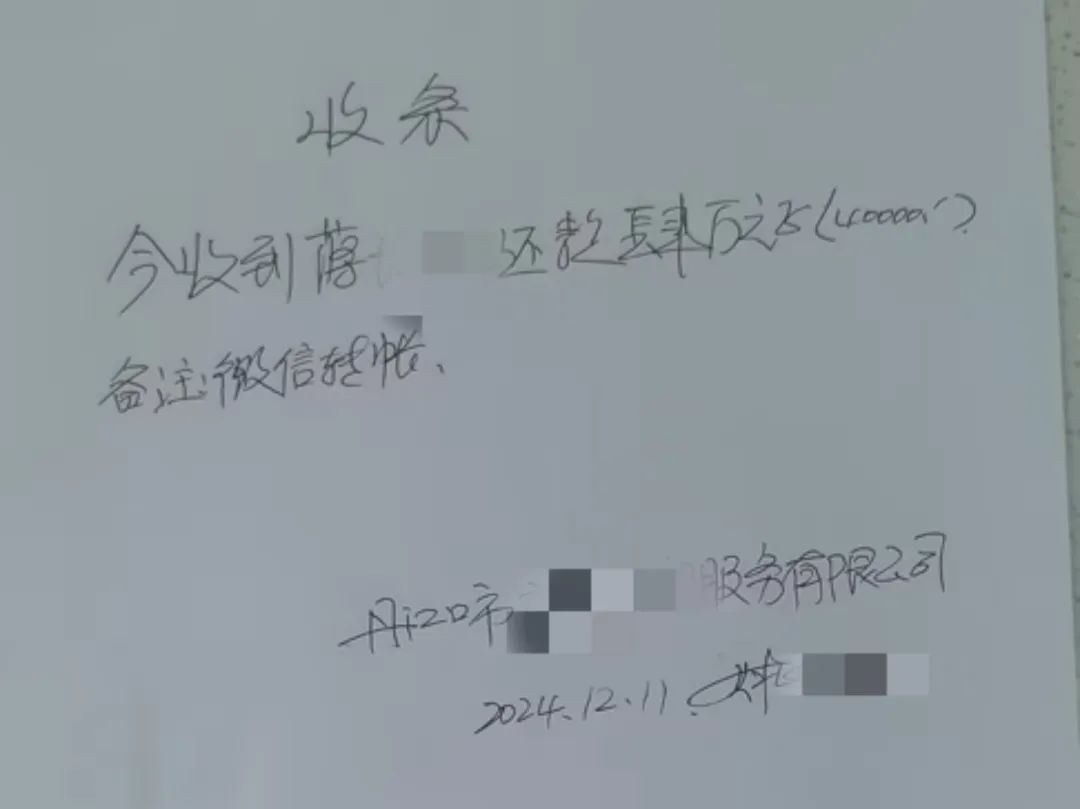 收条
今收到蒋 还款肆万元(40000)
备注微信转帐、
丹江口市 服务有限公司
2024.12.11.